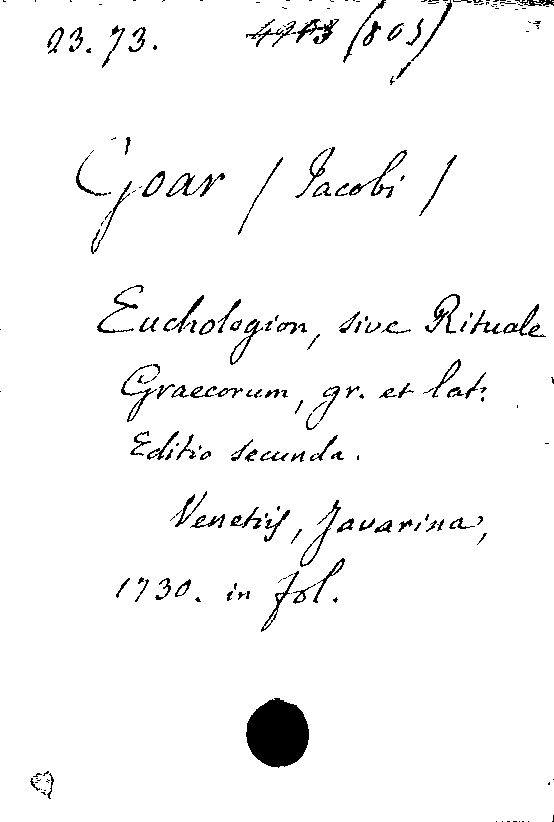 23.73. 4973 (805)
Goar / Jacobi /
Euchologion, sive Rituale
Graecorum, gr. et lat.
Editio secunda.
Venetiis, Javarina,
1730. in fol.